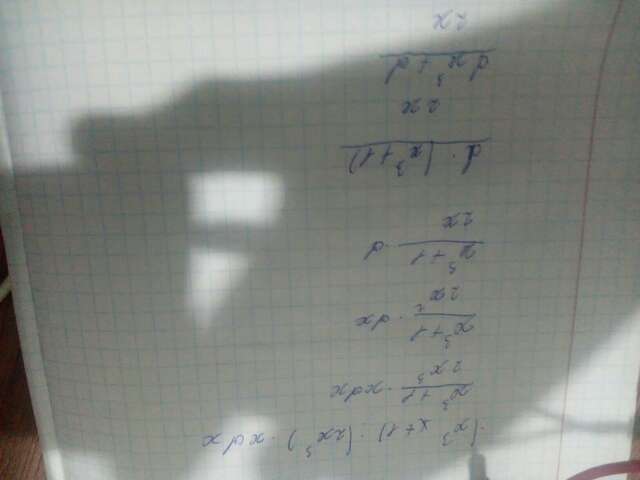 (x³ x+1) : (2x³) · xdx
x³+1
2x³ · xdx
x³+1
2x² · dx
x³+1
2x · d
d · (x³+1)
2x
dx³+d
2x